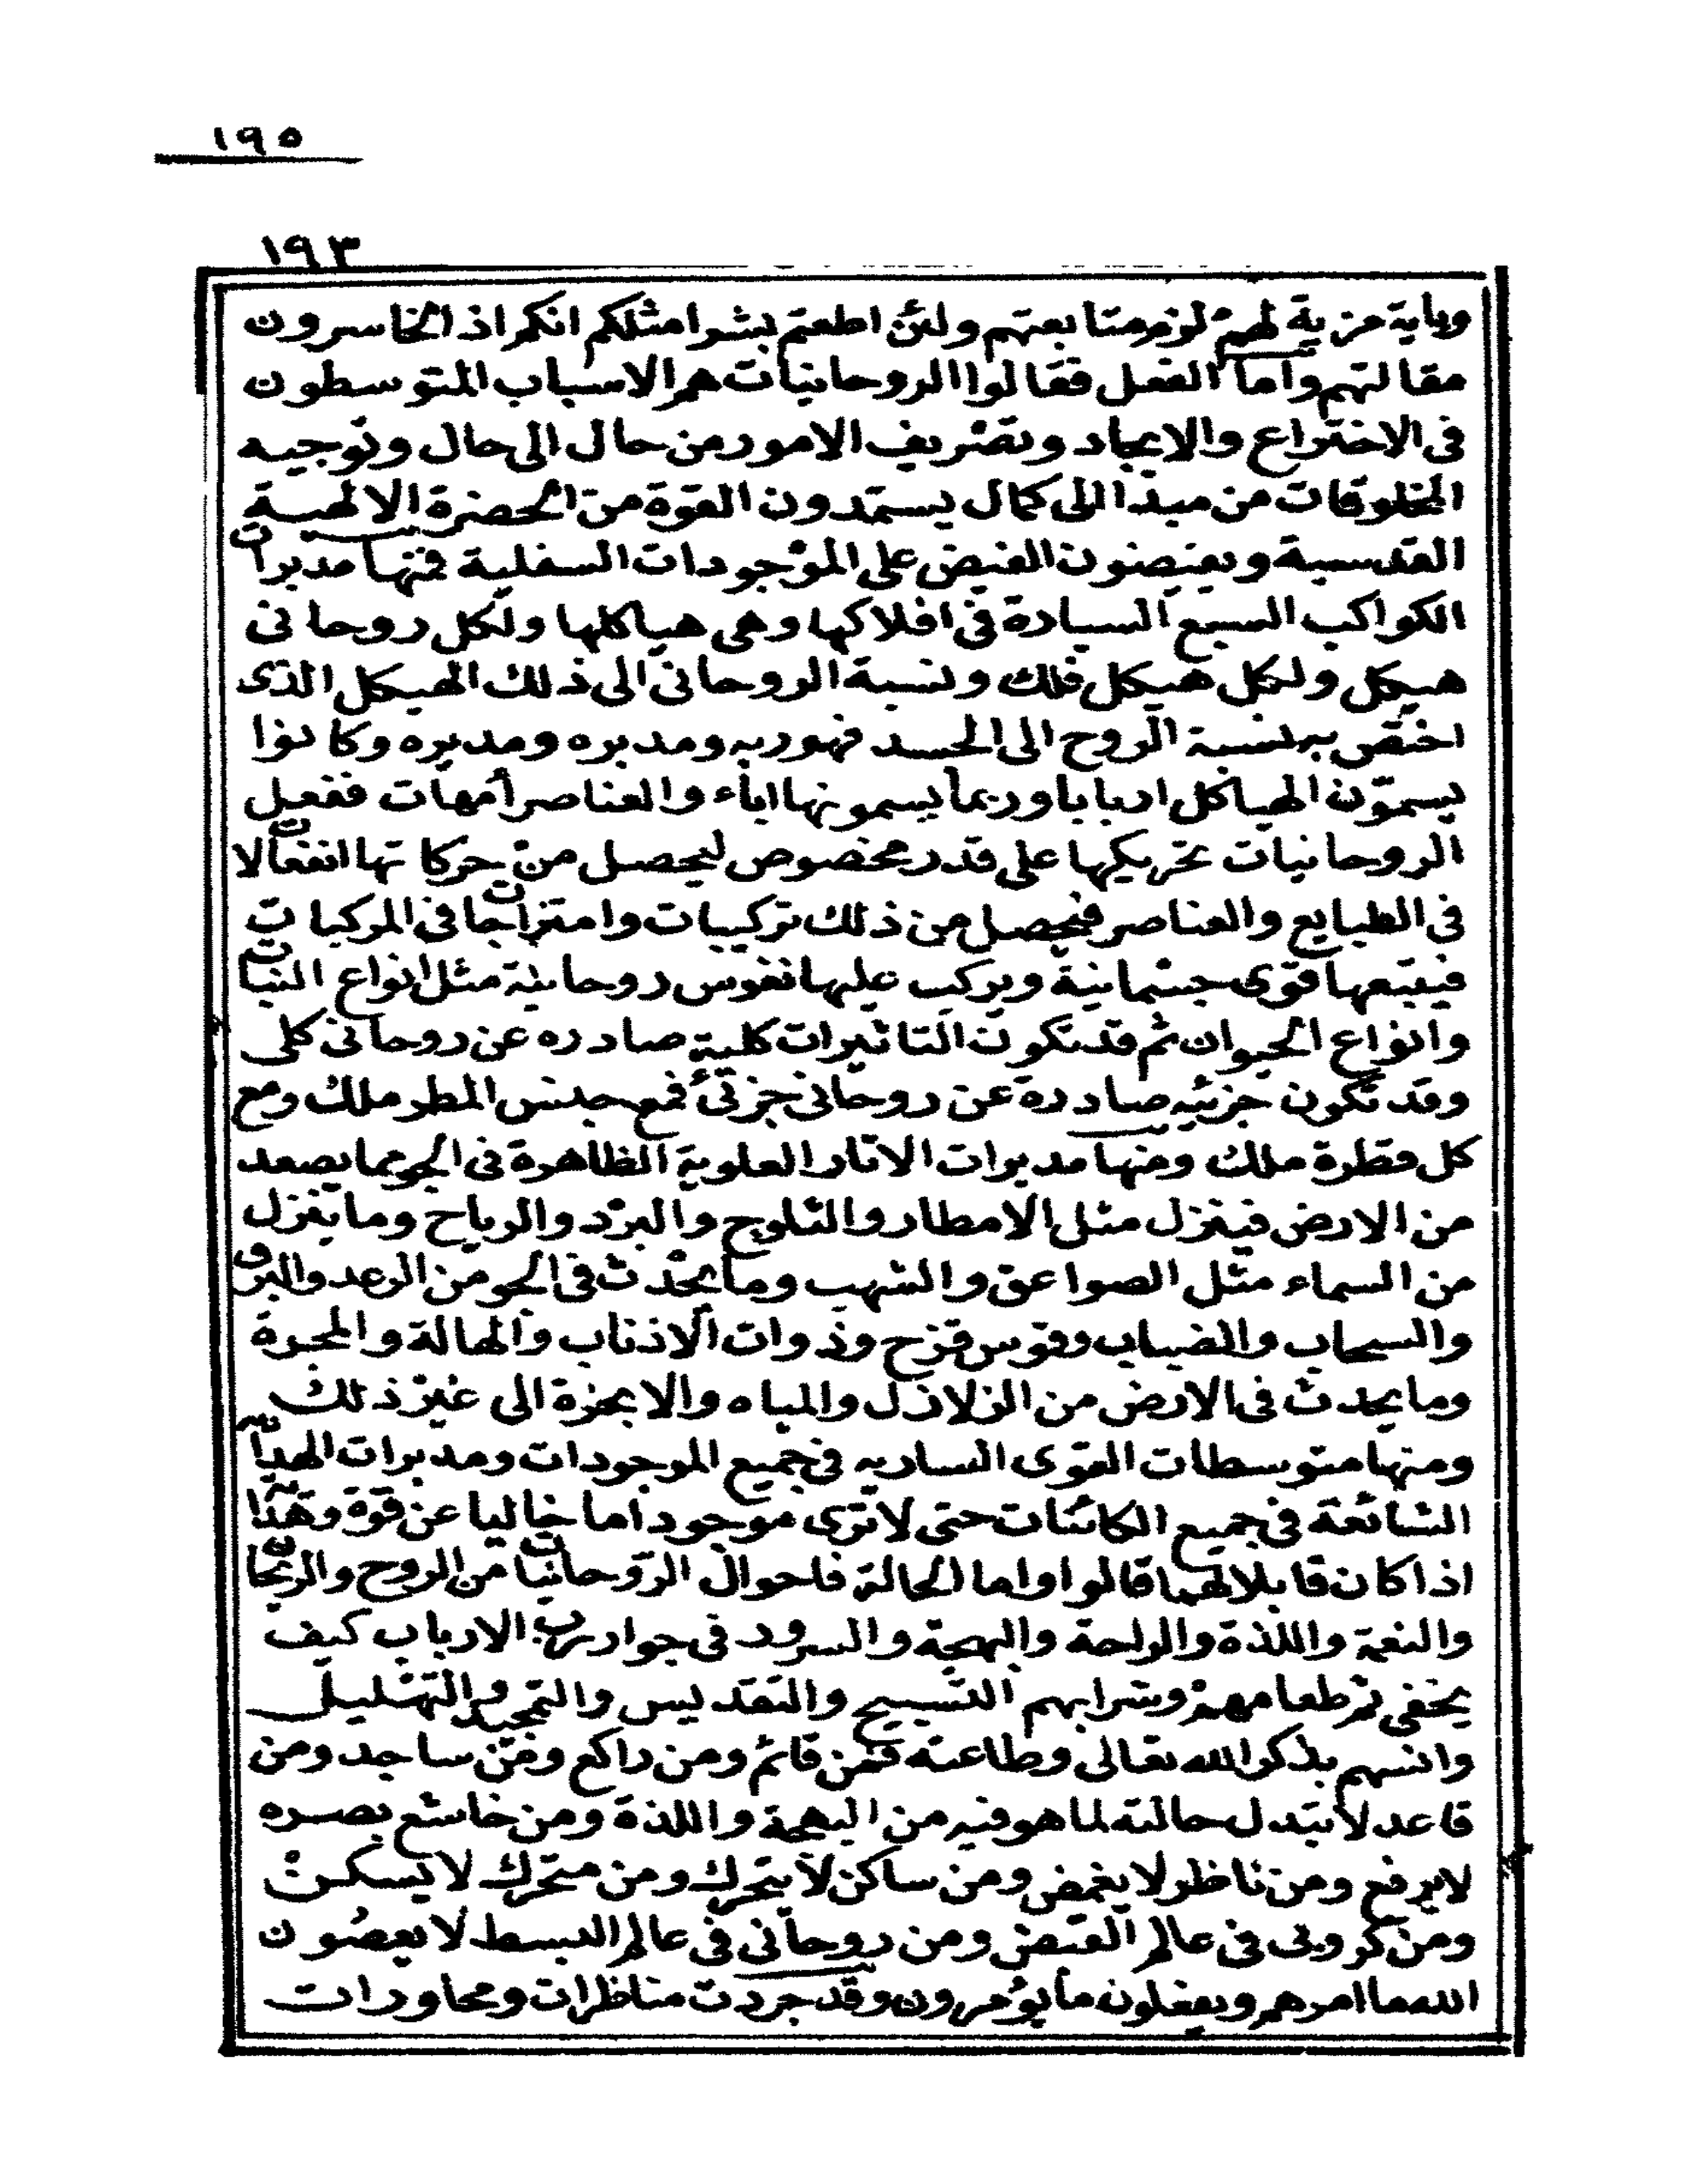 ١٩٥
١٩٣
وباية مزية لهم لزم متابعتهم ولئن اطعتم بشرا مثلكم انكم اذا لخاسرون
مقالتهم واما الفعل فقالوا الروحانيات هم الاسباب المتوسطون
فى الاختراع والايجاد وتصريف الامور من حال الى حال وتوجيه
المخلوقات من مبدا الى كمال يستمدون القوة من الحضرة الالهية
القدسية ويفيضون الفيض على الموجودات السفلية فمنها مدبرات
الكواكب السبع السيارة فى افلاكها وهى هياكلها ولكل روحانى
هيكل ولكل هيكل فلك ونسبة الروحانى الى ذلك الهيكل الذى
اختص به نسبة الروح الى الجسد فهو ربه ومدبره ومديره وكانوا
يسمون الهياكل اربابا وربما يسمونها اباء والعناصر أمهات ففعل
الروحانيات تحريكها على قدر مخصوص ليحصل من حركاتها انفعالات
فى الطبايع والعناصر فيحصل من ذلك تركيبات وامتزاجات فى المركبات
فيتبعها قوى جسمانية ويركب عليها نفوس روحانية مثل انواع النبات
وانواع الحيوان ثم قد تكون التاثيرات كلية صادره عن روحانى كلى
وقد تكون جزئيه صادرة عن روحانى جزئى فمع جنس المطر ملك ومع
كل قطرة ملك ومنها مدبرات الاثار العلوية الظاهرة فى الجو مما يصعد
من الارض فينزل مثل الامطار والثلوج والبرد والرياح وما ينزل
من السماء مثل الصواعق والشهب وما يحدث فى الجو من الرعد والبرق
والسحاب والضباب وقوس قزح وذوات الاذناب والهالة والمجرة
وما يحدث فى الارض من الزلازل والمياه والابخرة الى غير ذلك
ومنها متوسطات القوى الساريه فى جميع الموجودات ومدبرات الهداية
الشائعة فى جميع الكائنات حتى لا ترى موجودا ما خاليا عن قوة وهداية
اذا كان قابلا لهما قالوا واما الحالة فاحوال الروحانيات من الروح والريحان
والنعمة واللذة والراحة والبهجة والسرور فى جوار رب الارباب كيف
يخفى ثم طعامهم وشرابهم التسبيح والتقديس والتمجيد والتهليل
وانسهم بذكر الله تعالى وطاعته فمن قائم ومن راكع ومن ساجد ومن
قاعد لا تبدل حالته لما هو فيه من البهجة واللذة ومن خاشع بصره
لا يرفع ومن ناظر لا يغمض ومن ساكن لا يتحرك ومن متحرك لا يسكن
ومن كروبى فى عالم القبض ومن روحانى فى عالم البسط لا يعصون
الله ما امرهم ويفعلون ما يؤمرون وقد جردت مناظرات ومحاورات